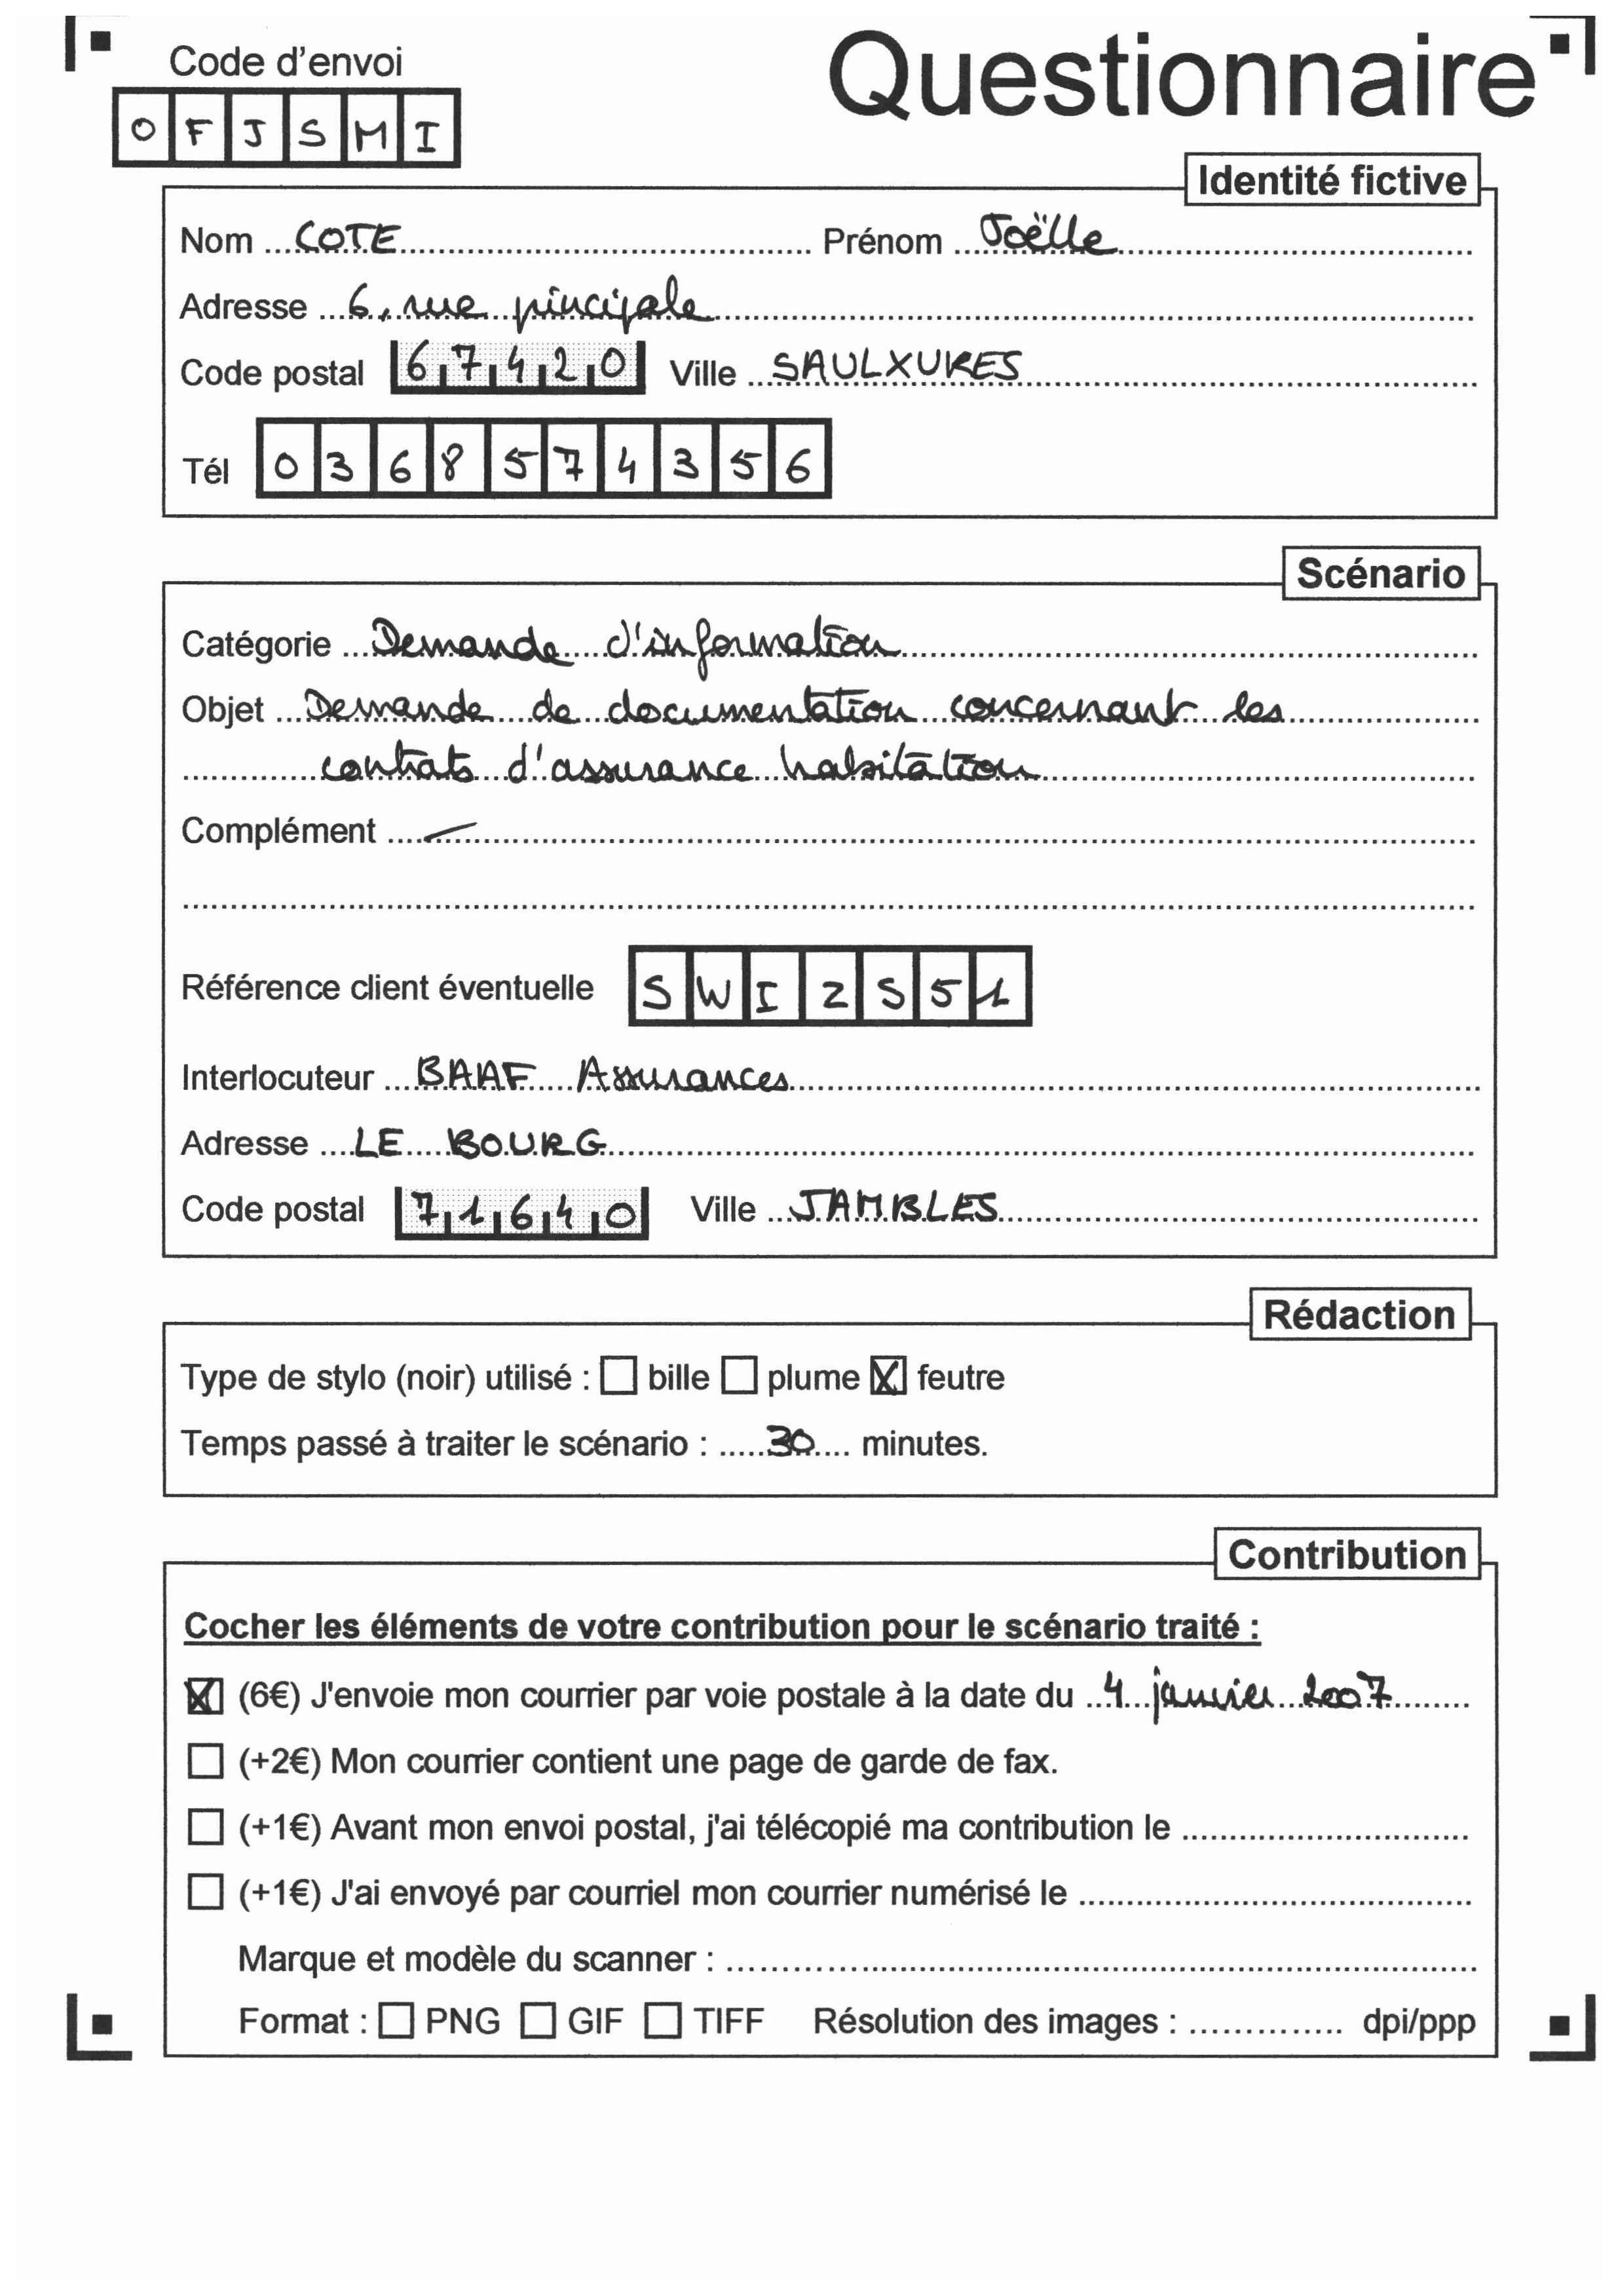 Code d'envoi
Questionnaire
OFJSMI
Identité fictive
Nom COTE Prénom Joëlle
Adresse 6, rue pincipale
Code postal 67420 Ville SAULXURES
Tél 0368574356
Scénario
Catégorie Demande d'information
Objet Demande de documentation concernant les
contrats d'assurance habitation
Complément
Référence client éventuelle SWI2S51
Interlocuteur BAAF Assurances
Adresse LE BOURG
Code postal 71640 Ville JAMBLES
Rédaction
Type de stylo (noir) utilisé : ☐ bille ☐ plume ☒ feutre
Temps passé à traiter le scénario : 30 minutes.
Contribution
Cocher les éléments de votre contribution pour le scénario traité :
☒ (6€) J'envoie mon courrier par voie postale à la date du 4 janvier 2007
☐ (+2€) Mon courrier contient une page de garde de fax.
☐ (+1€) Avant mon envoi postal, j'ai télécopié ma contribution le
☐ (+1€) J'ai envoyé par courriel mon courrier numérisé le
Marque et modèle du scanner :
Format : ☐ PNG ☐ GIF ☐ TIFF Résolution des images : dpi/ppp